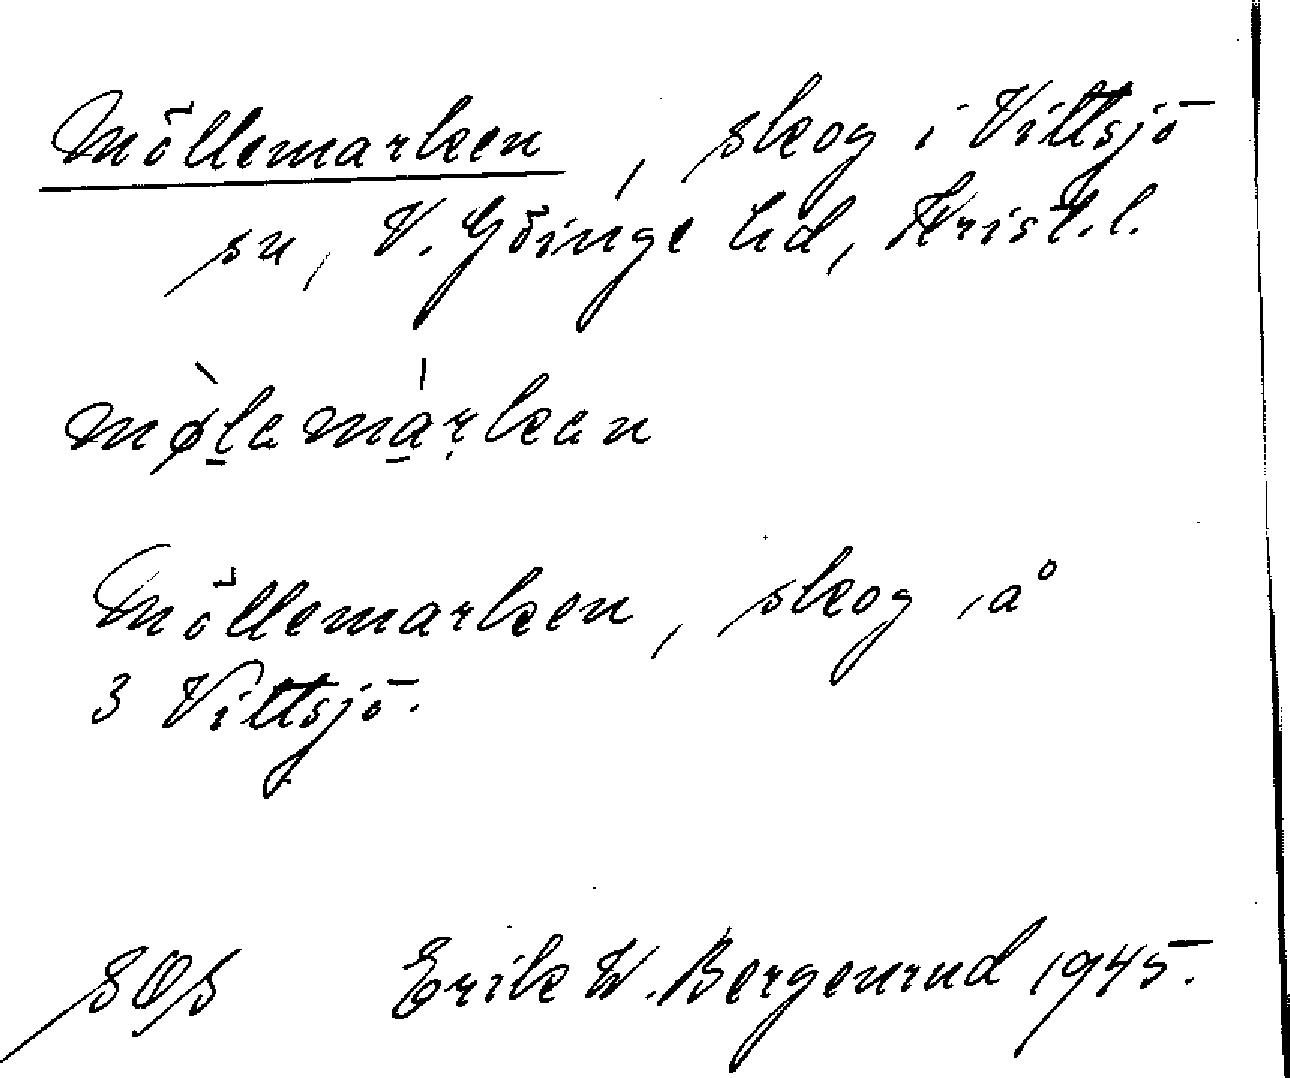 Möllemarken, skog i Vittsjö
sn, V. Göinge hd, Krist.l.
mø̀lamárkan
Möllemarken, skog å
3 Vittsjö.
SOS Erik W. Bergenrud 1945.